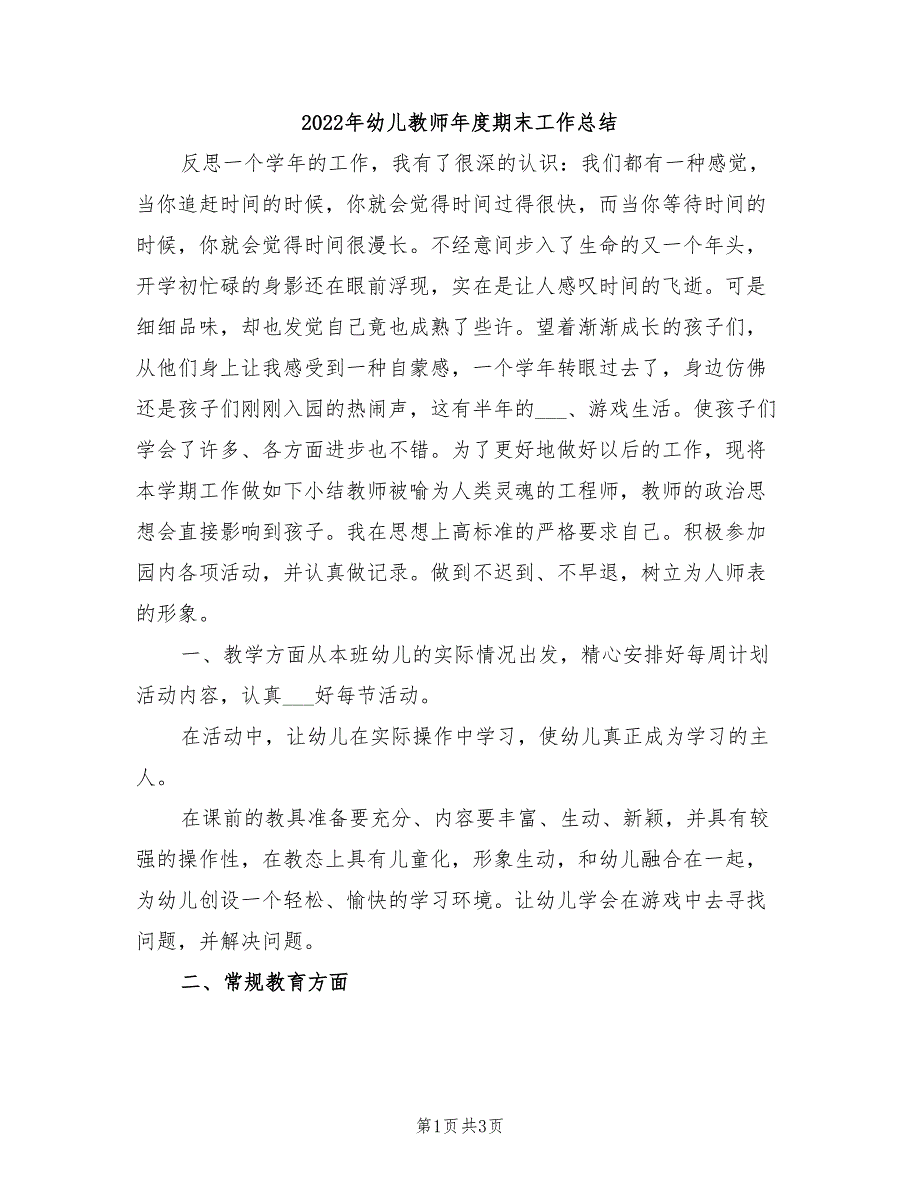 2022年幼儿教师年度期末工作总结
反思一个学年的工作，我有了很深的认识：我们都有一种感觉，
当你追赶时间的时候，你就会觉得时间过得很快，而当你等待时间的
时候，你就会觉得时间很漫长。不经意间步入了生命的又一个年头，
开学初忙碌的身影还在眼前浮现，实在是让人感叹时间的飞逝。可是
细细品味，却也发觉自己竟也成熟了些许。望着渐渐成长的孩子们，
从他们身上让我感受到一种自蒙感，一个学年转眼过去了，身边仿佛
还是孩子们刚刚入园的热闹声，这有半年的___、游戏生活。使孩子们
学会了许多、各方面进步也不错。为了更好地做好以后的工作，现将
本学期工作做如下小结教师被喻为人类灵魂的工程师，教师的政治思
想会直接影响到孩子。我在思想上高标准的严格要求自己。积极参加
园内各项活动，并认真做记录。做到不迟到、不早退，树立为人师表
的形象。
一、教学方面从本班幼儿的实际情况出发，精心安排好每周计划
活动内容，认真___好每节活动。
在活动中，让幼儿在实际操作中学习，使幼儿真正成为学习的主
人。
在课前的教具准备要充分、内容要丰富、生动、新颖，并具有较
强的操作性，在教态上具有儿童化，形象生动，和幼儿融合在一起，
为幼儿创设一个轻松、愉快的学习环境。让幼儿学会在游戏中去寻找
问题，并解决问题。
二、常规教育方面
第1页共3页